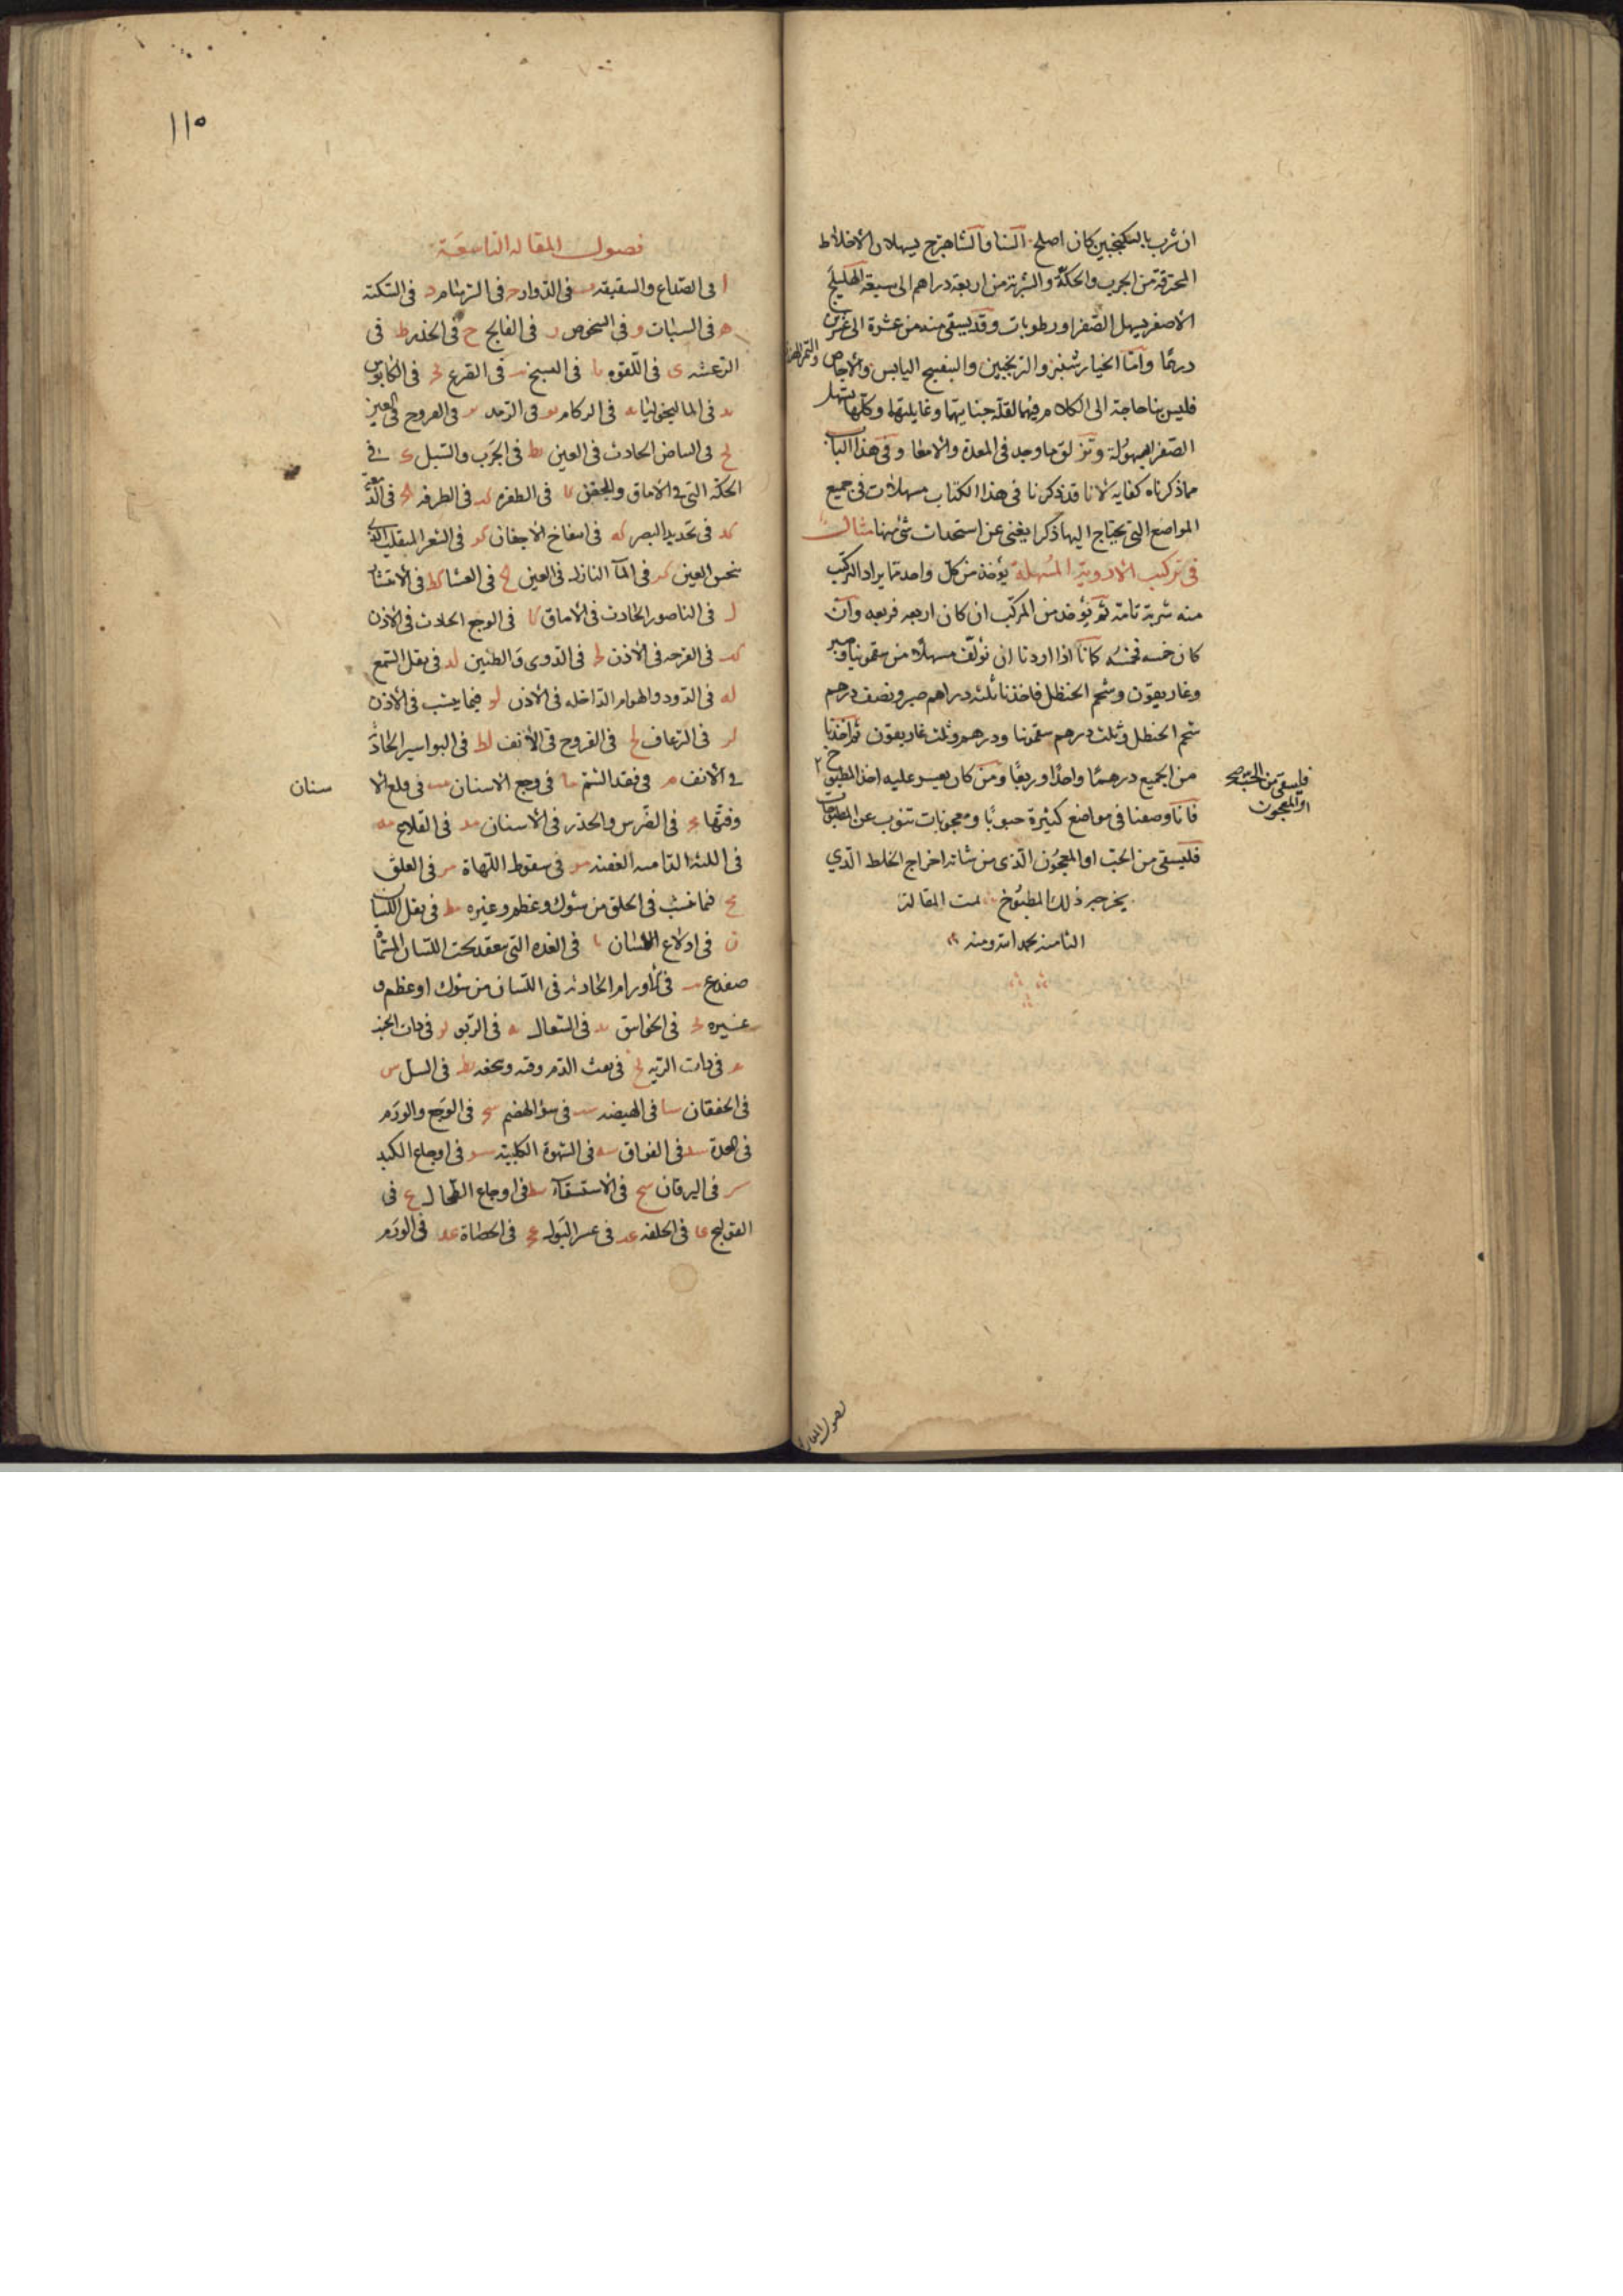 ان شرب بالسكنجبين كان اصلح السنا والشاهترج يسهلان الاخلاط
المحترقة من الجرب والحكة والشربة من اربعة دراهم الى سبعة الهليلج
الاصفر يسهل الصفرا ورطوبات وقد يسقى منه من عشرة الى عشرين
درهما واما الخيار شنبر والترنجبين والبنفسج اليابس والاجاص والتمر الهندى
فليس بنا حاجة الى الكلام فيها لقلة جنايتها وغايلتها وكلها يسهل
الصفرا بسهولة وتزلق ما وجد فى المعدة والامعا وفى هذا الباب
مما ذكرناه كفايه لانا قد ذكرنا فى هذا الكتاب مسهلات فى جميع
المواضع التى يحتاج اليها ذكرا يغنى عن استحداث شى منها مثال
فى تركيب الادوية المسهلة يؤخذ من كل واحد مما يراد التركيب
منه شربة تامة ثم يؤخذ من المركب ان كان اربعه فربعه وان
كان خمسه فخمسه كانا اذا اردنا ان نؤلف مسهلا من سقمونيا وصبر
وغاريقون وشحم الحنظل فاخذنا ثلثه دراهم صبر ونصف درهم
شحم الحنظل وثلث درهم سقمونيا ودرهم وثلث غاريقون ثم اخذنا
من الجميع درهما واحدا وربعا ومن كان يعسر عليه اخذ المطبوخ
فليسقى من الحب صح
او المعجون
فانا وصفنا فى مواضع كثيرة حبوبا ومعجونات تنوب عن المطبوخات
فليسقى من الحب او المعجون الذى من شانه اخراج الخلط الذي
يخرجه ذلك المطبوخ تمت المقالة
الثامنة بحمد الله ومنه
فصول المقاله
١١٥
فصول المقاله التاسعة
ا فى الصداع والشقيقه ب فى الدوار ج فى البرسام د فى السكته
ه فى السبات و فى الشخوص ز فى الفالج ح فى الخدر ط فى
الرعشه ى فى اللقوه يا فى التشنج يب فى الصرع يج فى الكابوس
يد فى الماليخوليا يه فى الزكام يو فى الرمد يز فى القروح فى العين
يح فى البياض الحادث فى العين يط فى الجرب والسبل ك فى
الحكه التى فى الاماق والجفن كا فى الظفره كب فى الطرفه كج فى الدمعة
كد فى تحديد البصر كه فى انتفاخ الاجفان كو فى الشعر المنقلب الذى
ينخس العين كز فى الما النازل فى العين كح فى العشا كط فى الانتشار
ل فى الناصور الحادث فى الاماق لا فى الوجع الحادث فى الاذن
لب فى القرحه فى الاذن لج فى الدوى والطنين لد فى ثقل السمع
له فى الدود والهوام الداخله فى الاذن لو فيما ينشب فى الاذن
لز فى الرعاف لح فى القروح فى الانف لط فى البواسير الحادث
فى الانف م فى فقد الشم ما فى وجع الاسنان مب فى قلع الا
سنان
وفتها مج فى الضرس والخدر فى الاسنان مد فى القلاع مه
فى اللثه الداميه العفنه مو فى سقوط اللهاة مز فى العلق
مح فيما نشب فى الحلق من شوك وعظم وغيره مط فى ثقل اللسان
ن فى ادلاع اللسان نا فى الغده التى تعقد تحت اللسان المسماة
ضفدع نب فى الاورام الحادثه فى اللسان من شوك او عظم و
غيره نج فى الخوانيق ند فى السعال نه فى الربو نو فى ذات الجنب
نز فى ذات الريه نح فى نفث الدم وقيه ونط فى السل س
فى الخفقان سا فى الهيضه سب فى سؤ الهضم سج فى الوجع والورم
فى المعدة سد فى الفواق سه فى الشهوة الكلبيه سو فى اوجاع الكبد
سز فى اليرقان سح فى الاستسقا سط فى اوجاع الطحال ع فى
القولنج عا فى الخلفه عب فى عسر البول عج فى الحصاة عد فى الورم